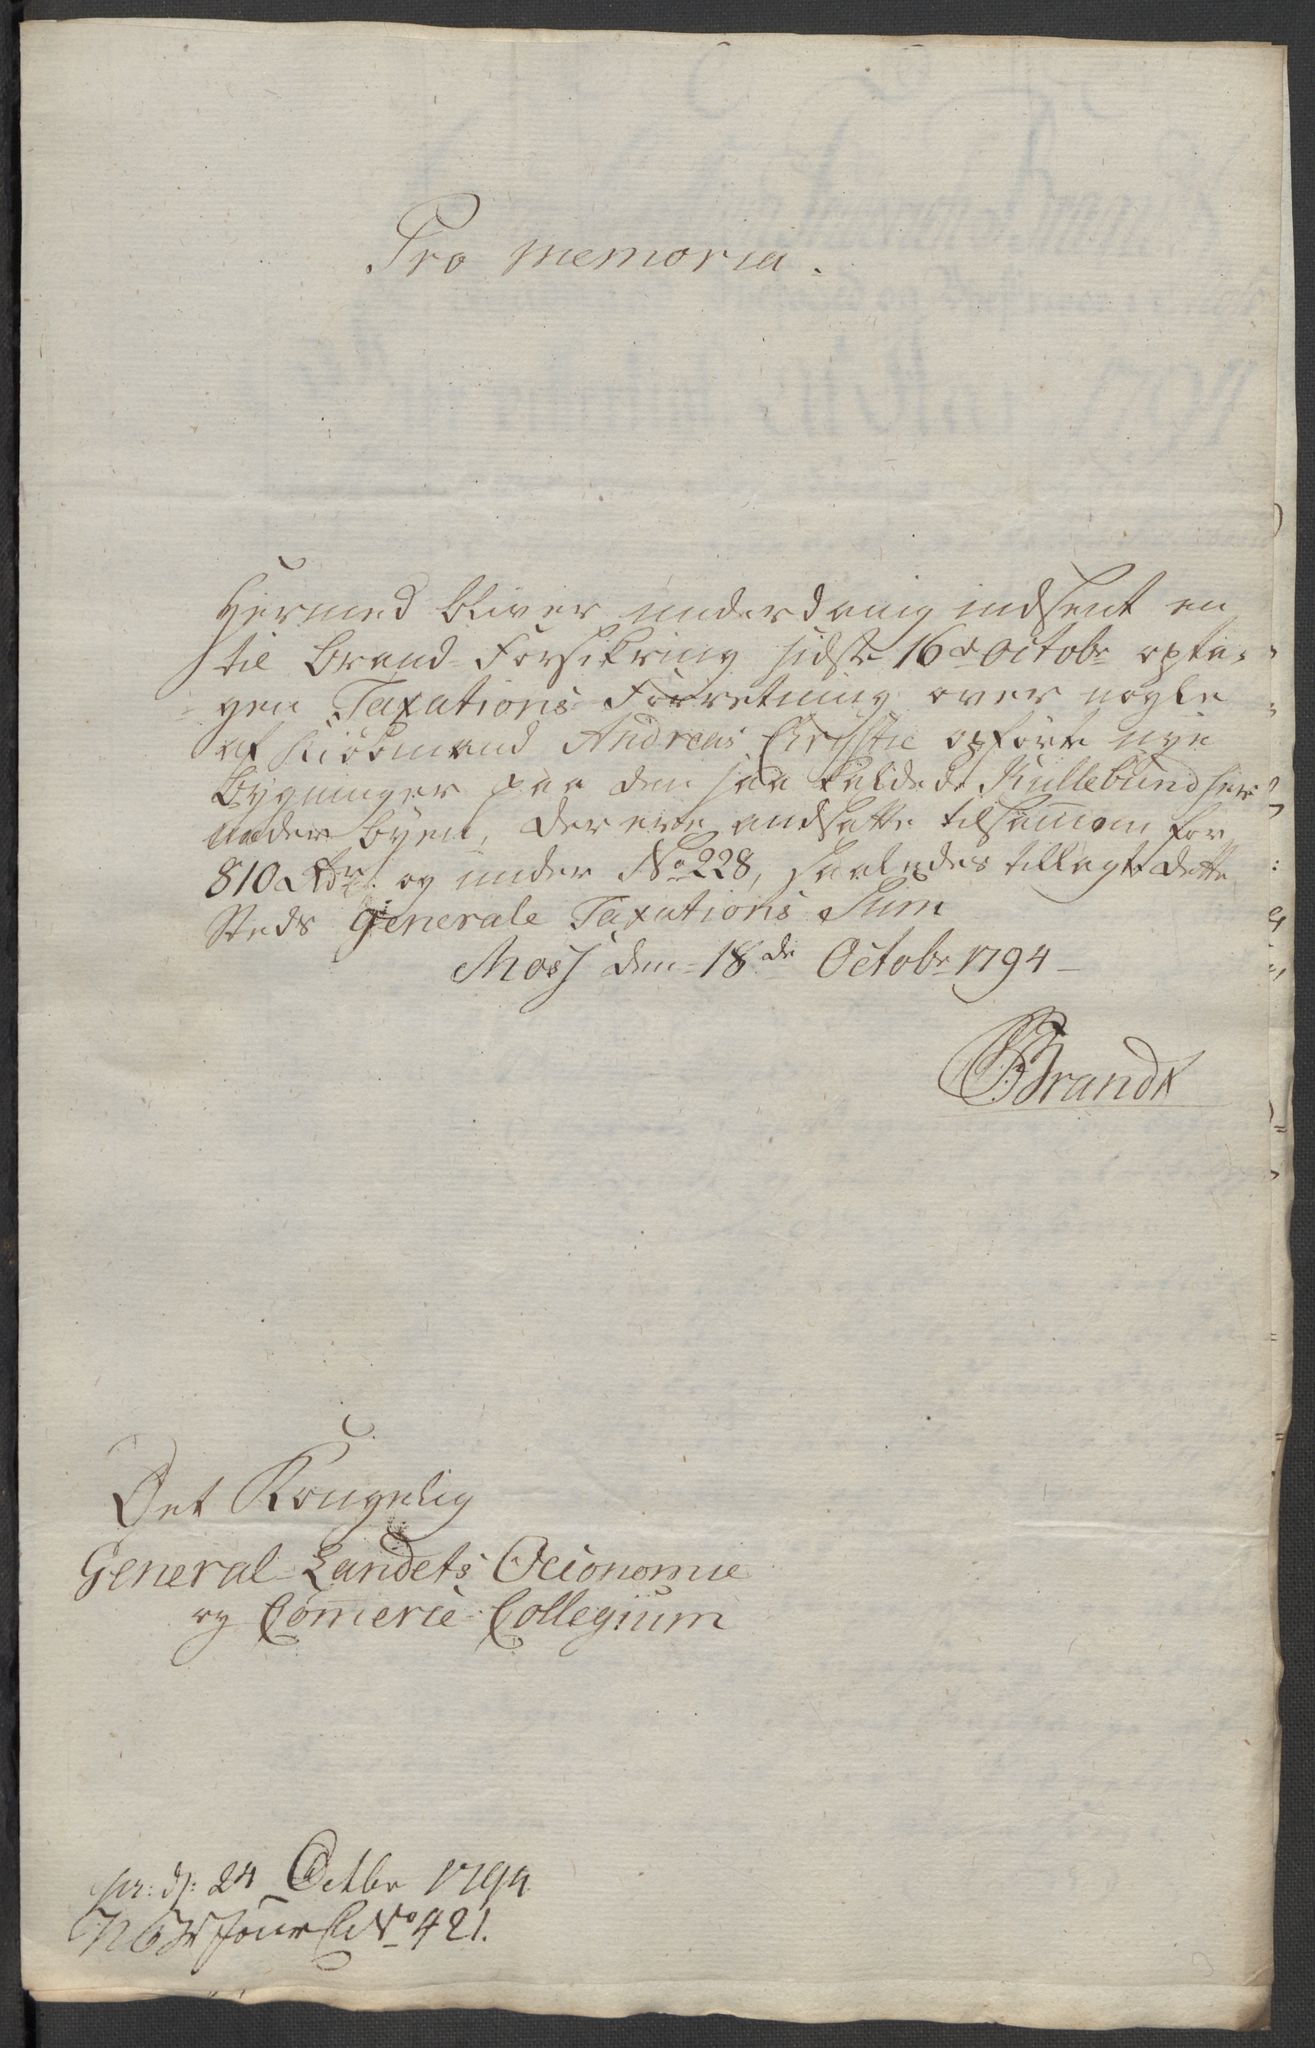 Pro memoria.
Hermed bliver underdanig indsent en
til Brand-Forsikring sidste 16de Octobr opta-
gen Taxations-Forretning over nogle
af Kiöbmand Andreas Chrystie opförte nye
Bygninger paa den saa kaldede Kullebund her
under Byen, der ere andsatte tilsam̅en for
810 Rdr og under No 228, saaledes tillagt dette
Steds Generale Taxations Sum
Moss den 18de Octobr 1794
Brandt
Det Kongelig
General-Landets Oeconomie
og Com̅erce-Collegium
pr: d: 24 Octbr 1794
Jour No 421.